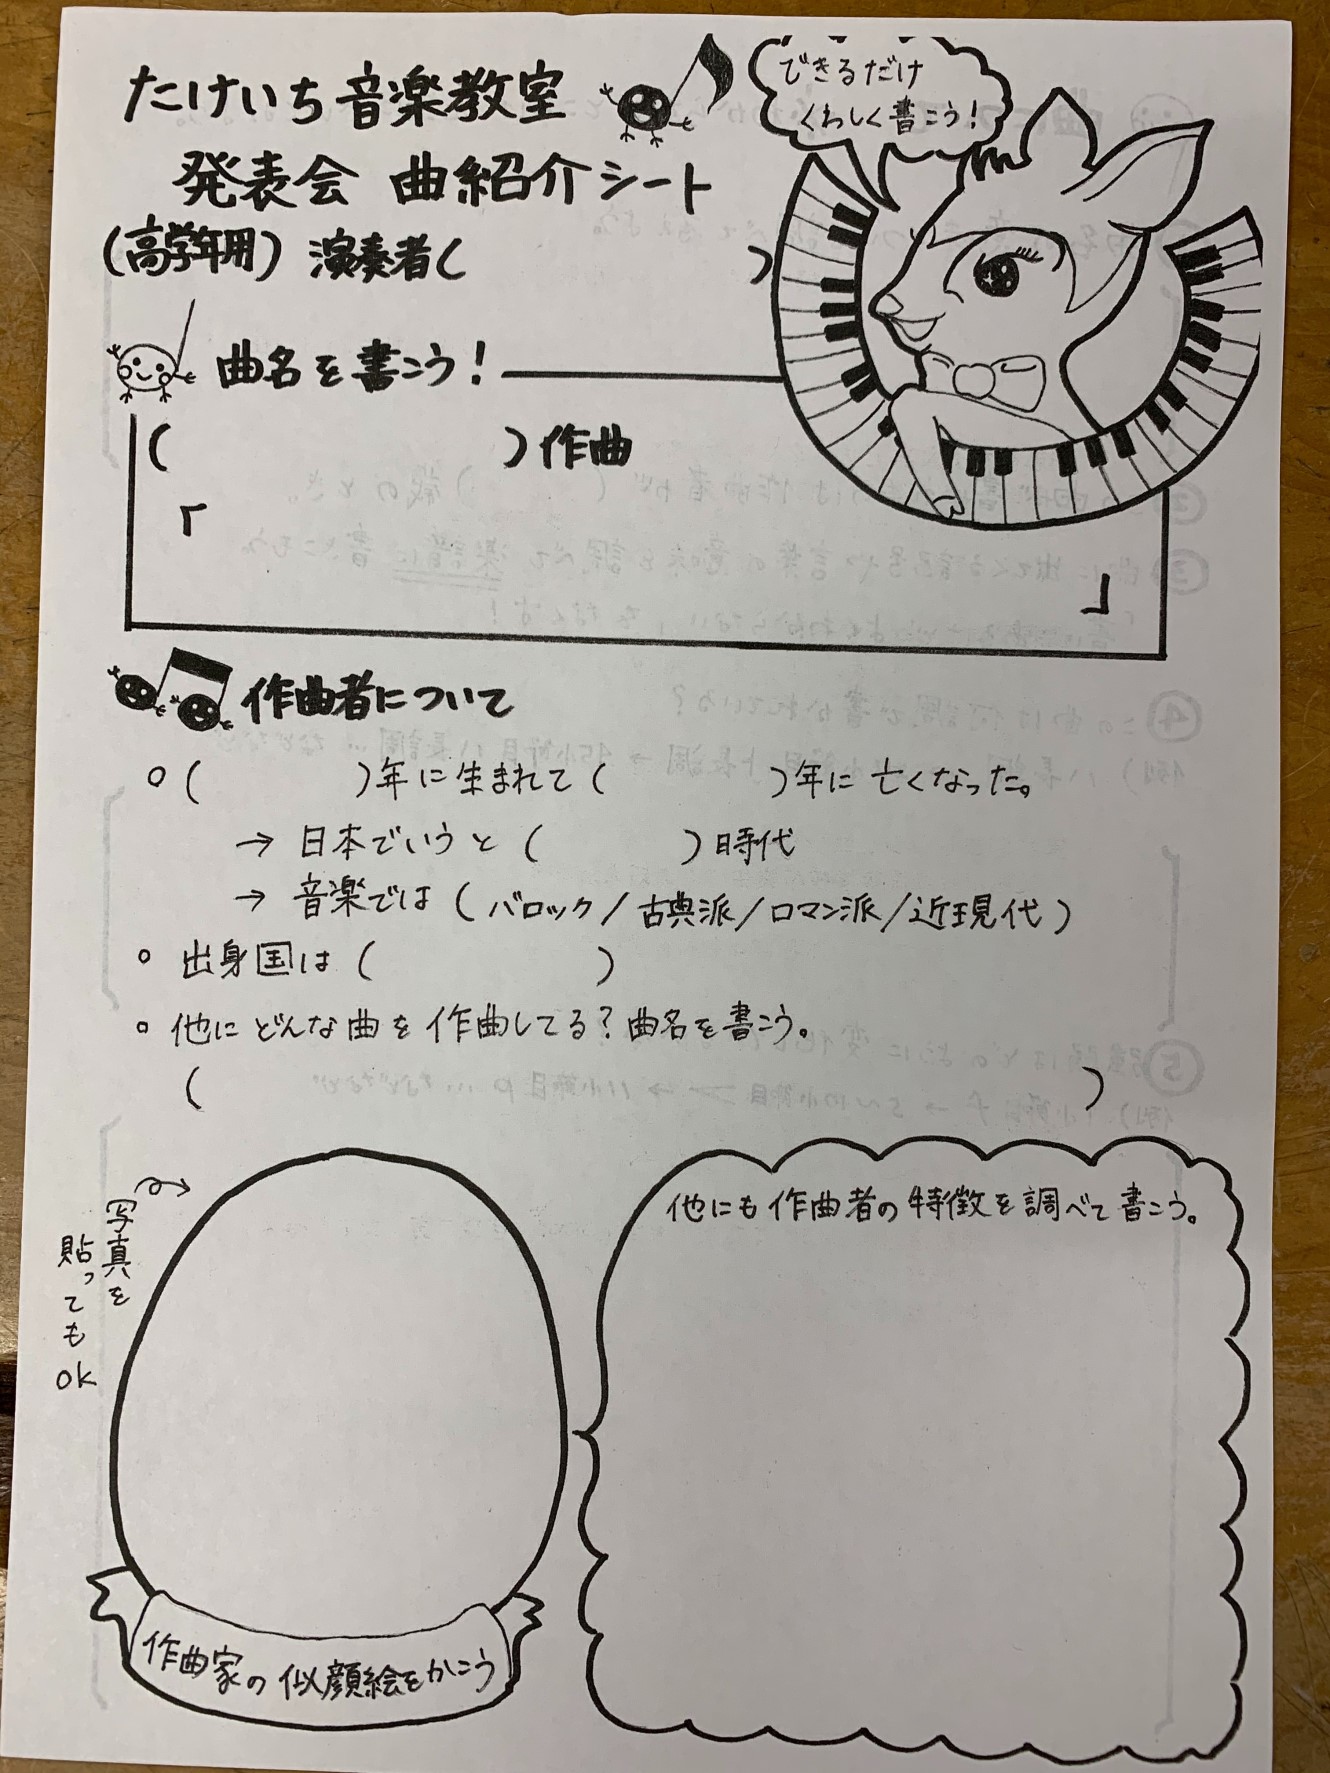 たけいち音楽教室
発表会 曲紹介シート
(高学年用) 演奏者( )
できるだけ
くわしく書こう!
曲名を書こう!
( )作曲
「 」
作曲者について
○( )年に生まれて( )年に亡くなった。
→ 日本でいうと( )時代
→ 音楽では(バロック/古典派/ロマン派/近現代)
○ 出身国は( )
○ 他にどんな曲を作曲してる?曲名を書こう。
( )
写真を
貼っても
OK
作曲家の似顔絵をかこう
他にも作曲者の特徴を調べて書こう。